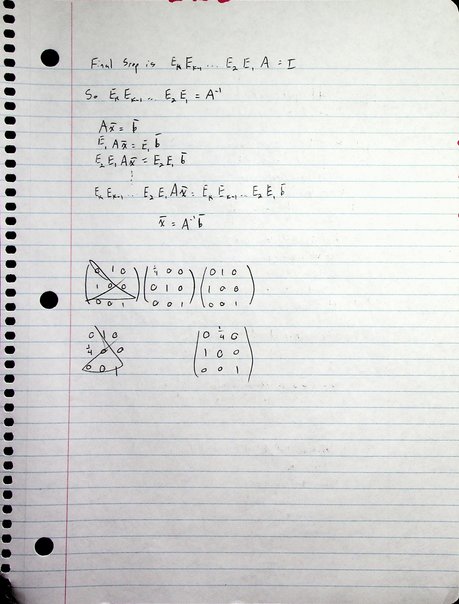 Final Step is E_k E_{k-1} ... E_2 E_1 A = I
So E_k E_{k-1} ... E_2 E_1 = A^{-1}
A x̄ = b̄
E_1 A x̄ = E_1 b̄
E_2 E_1 A x̄ = E_2 E_1 b̄
⋮
E_k E_{k-1} ... E_2 E_1 A x̄ = E_k E_{k-1} ... E_2 E_1 b̄
x̄ = A^{-1} b̄
( 0 1 0 ) ( 1/4 0 0 ) ( 0 1 0 )
( 1 0 0 ) ( 0 1 0 ) ( 1 0 0 )
( 0 0 1 ) ( 0 0 1 ) ( 0 0 1 )
0 1 0 ( 0 1/4 0 )
1/4 0 0 ( 1 0 0 )
0 0 1 ( 0 0 1 )